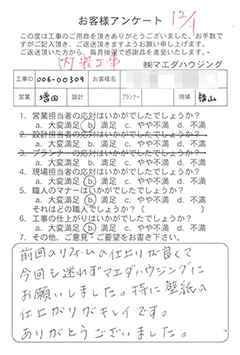 お客様アンケート 12/1
この度は工事のご用命を頂きありがとうございました。お手数で
すがご記入頂き、ご返送頂きますようお願い申し上げます。
ご返送頂いた方から、毎月抽選で感謝品を進呈いたします。
内装工事 ㈱マエダハウジング
工事ID 006-00309 お客様名
営業 増田 設計 プランナー 現場 福山
1. 営業担当者の応対はいかがでしたでしょうか?
a. 大変満足 b. 満足 c. やや不満 d. 不満
2. 設計担当者の応対はいかがでしたでしょうか?
a. 大変満足 b. 満足 c. やや不満 d. 不満
3. プランナーの応対はいかがでしたでしょうか?
a. 大変満足 b. 満足 c. やや不満 d. 不満
4. 現場担当者の応対はいかがでしたでしょうか?
a. 大変満足 b. 満足 c. やや不満 d. 不満
5. 職人のマナーはいかがでしたでしょうか?
a. 大変満足 b. 満足 c. やや不満 d. 不満
それはどの職人でしょうか?( )
6. 工事の仕上がりはいかがでしたでしょうか?
a. 大変満足 b. 満足 c. やや不満 d. 不満
7. その他、ご意見・ご要望をお書き下さい。
前回のリフォームの仕上りが良くて
今回も迷れずマエダハウジングに
お願いしました。特に壁紙の
仕上がりがキレイです。
ありがとうございました。